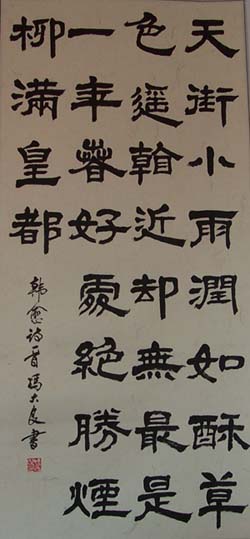 天街小雨潤如酥草
色遥看近却無最是
一年春好處絶勝煙
柳滿皇都
韓愈詩一首馮大良書